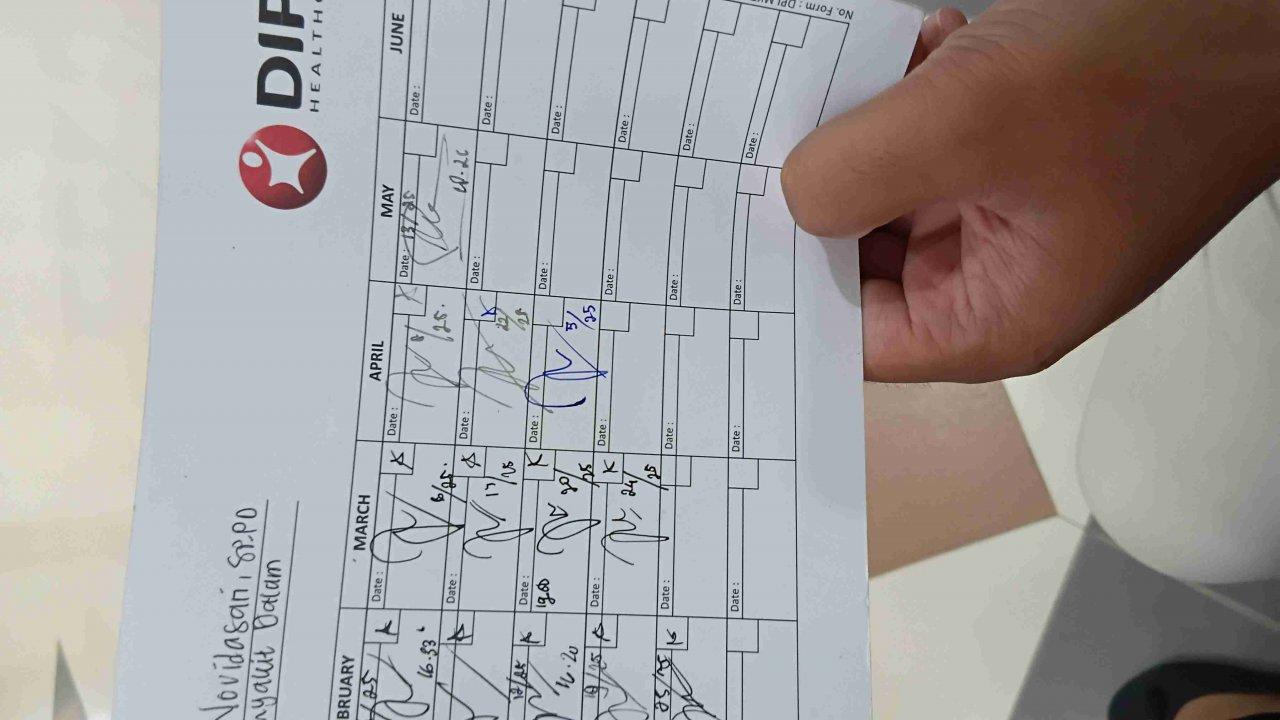 No. Form : DPI
DIP
HEALTHC
Novidasari, SP.PD
nyakit Dalam
BRUARY
MARCH
APRIL
MAY
JUNE
/25
K
16.33
K
K
16.20
/25
K
25/25
K
Date :
K
/25.
Date :
K
17/25
Date :
19.00
K
20/25
Date :
K
24/25
Date :
Date :
Date :
8/25.
Date :
K
22/25
Date :
5/25
Date :
Date :
Date :
Date : 13/25
Date :
Date :
Date :
Date :
Date :
Date :
Date :
Date :
Date :
Date :
Date :